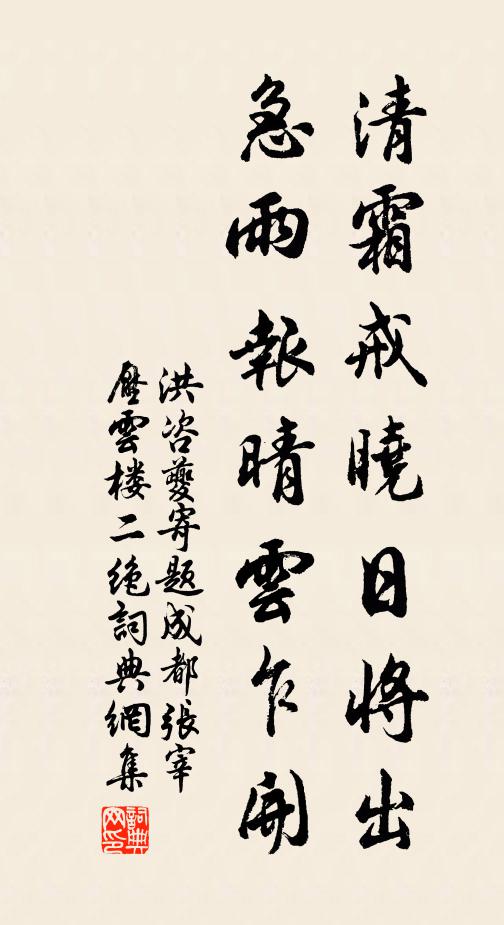 清霜戒曉日將出
急雨報晴雲乍開
洪咨夔寄题成都張宰
壓雲楼二绝詞典網集
詞典
网印